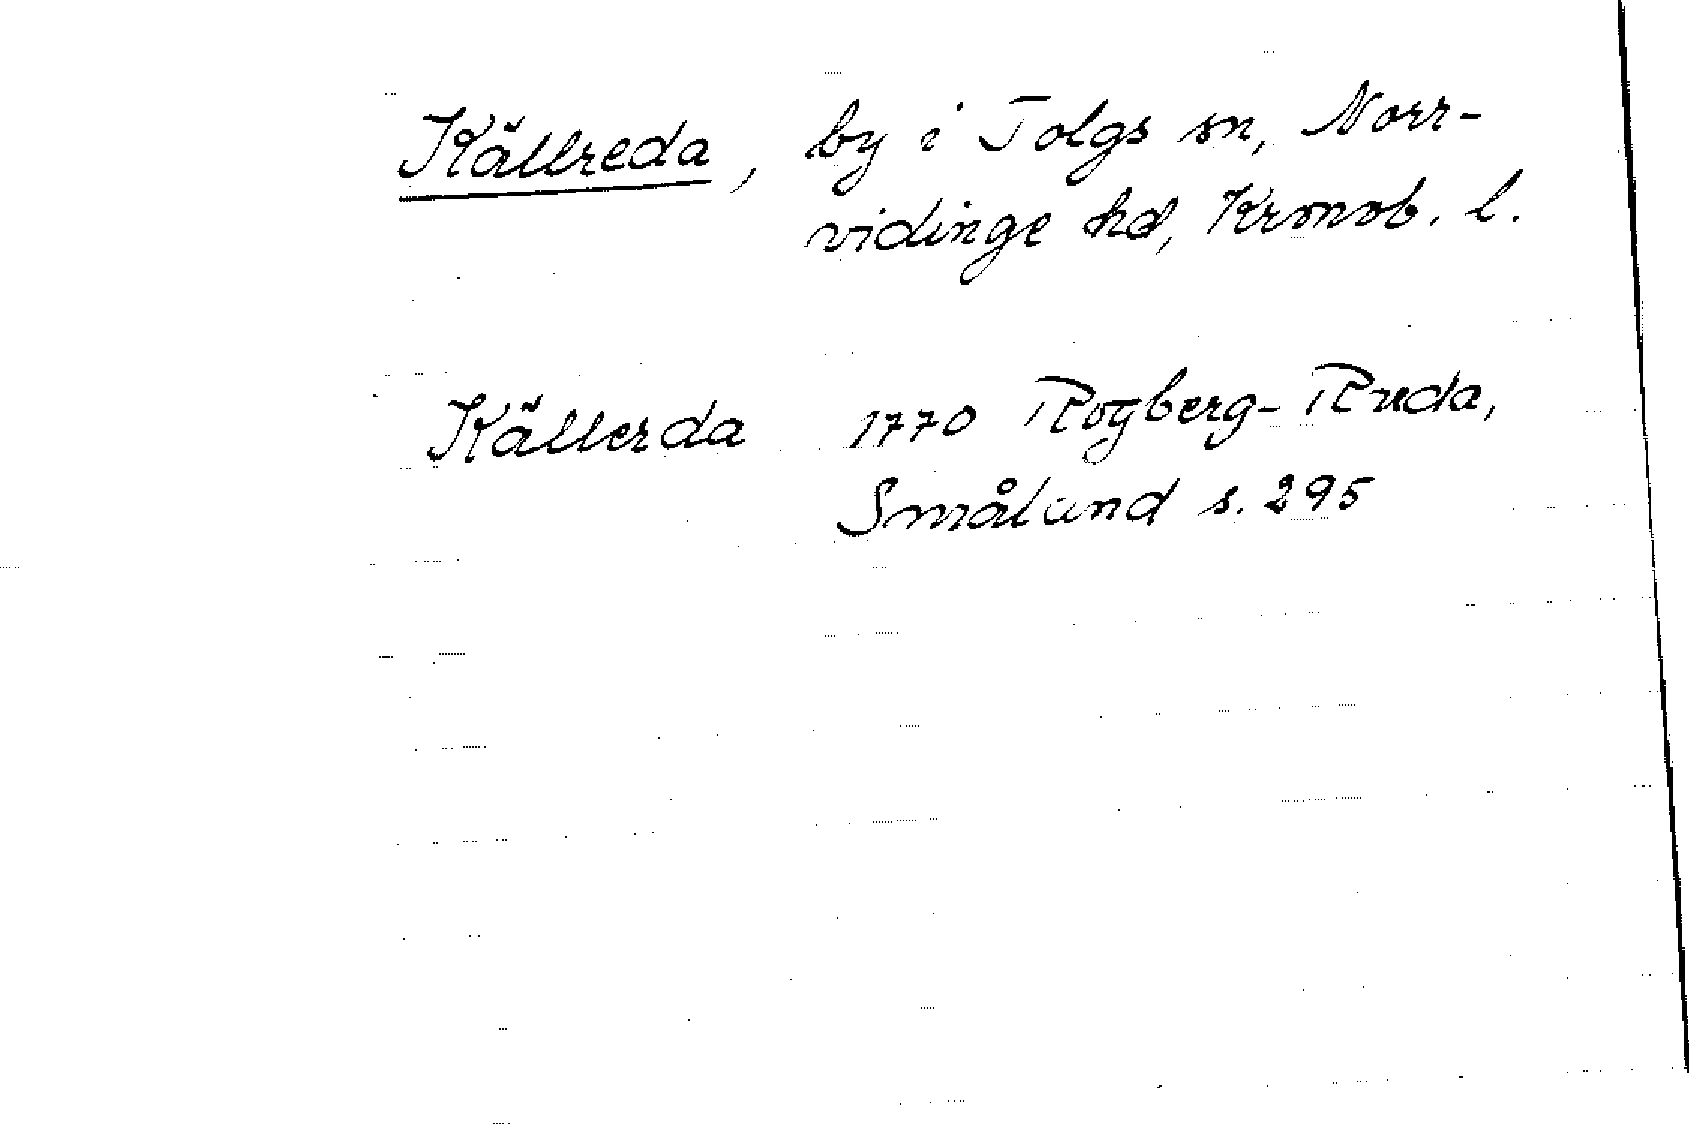 Källreda, by i Tolgs sn, Norr-
vidinge hd, Kronob. l.
Källerda 1770 Rogberg-Ruda,
Småland s. 295